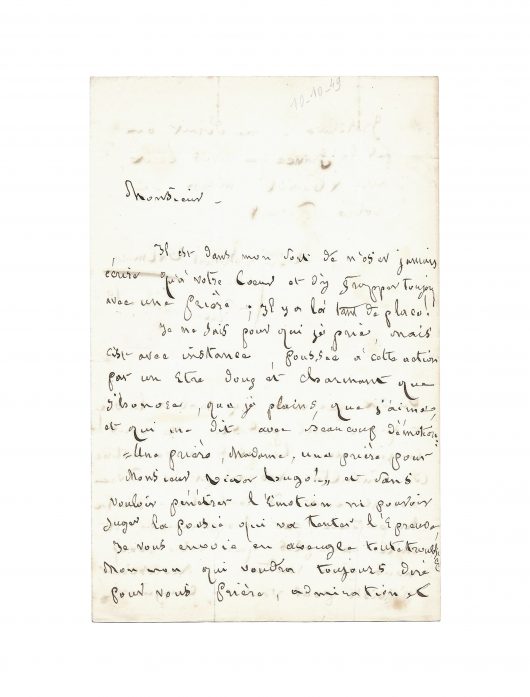 10-10-49
Monsieur -
Il est dans mon sort de n'oser jamais
écrire qu'à votre Coeur et d'y frapper toujours
avec une prière ; Il y a là tant de place !
Je ne sais pour qui je prie, mais
c'est avec instance, poussée à cette action
par un Etre doux et charmant que
j'honore, que je plains, que j'aime,
et qui me dit avec beaucoup d'émotion :
« Une prière, Madame, une prière pour
Monsieur Victor Hugo ! » et sans
vouloir pénétrer l'Emotion ni pouvoir
juger la poésie qui va tenter l'Epreuve,
Je vous envoie en aveugle toute troublée
Mon nom qui voudra toujours dire
pour vous prière, admiration et